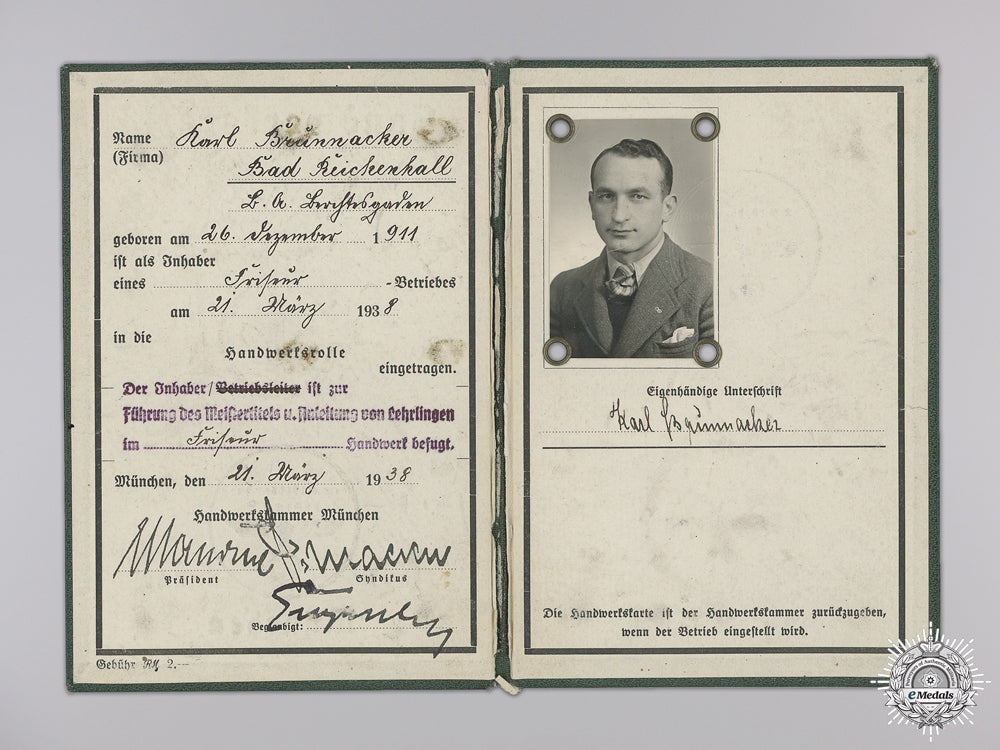 Name Karl Brunnacker
(Firma) Bad Reichenhall
B. A. Berchtesgaden
geboren am 26. Dezember 1911
ist als Inhaber
eines Friseur -Betriebes
am 21. März 1938
in die
Handwerksrolle
eingetragen.
Der Inhaber/Betriebsleiter ist zur
Führung des Meistertitels u. Anleitung von Lehrlingen
im Friseur Handwerk befugt.
München, den 21. März 1938
Handwerkskammer München
Präsident Syndikus
Beglaubigt:
Gebühr RM 2.—
Eigenhändige Unterschrift
Karl Brunnacker
Die Handwerkskarte ist der Handwerkskammer zurückzugeben,
wenn der Betrieb eingestellt wird.
eMedals